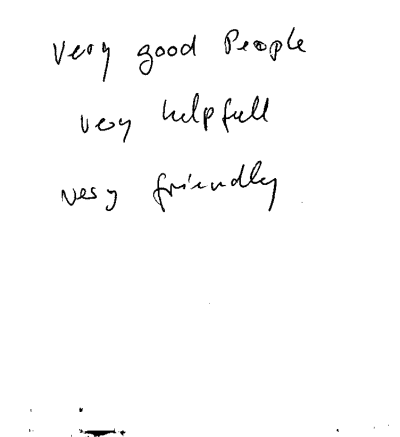 Very good People
very helpfull
very friendly